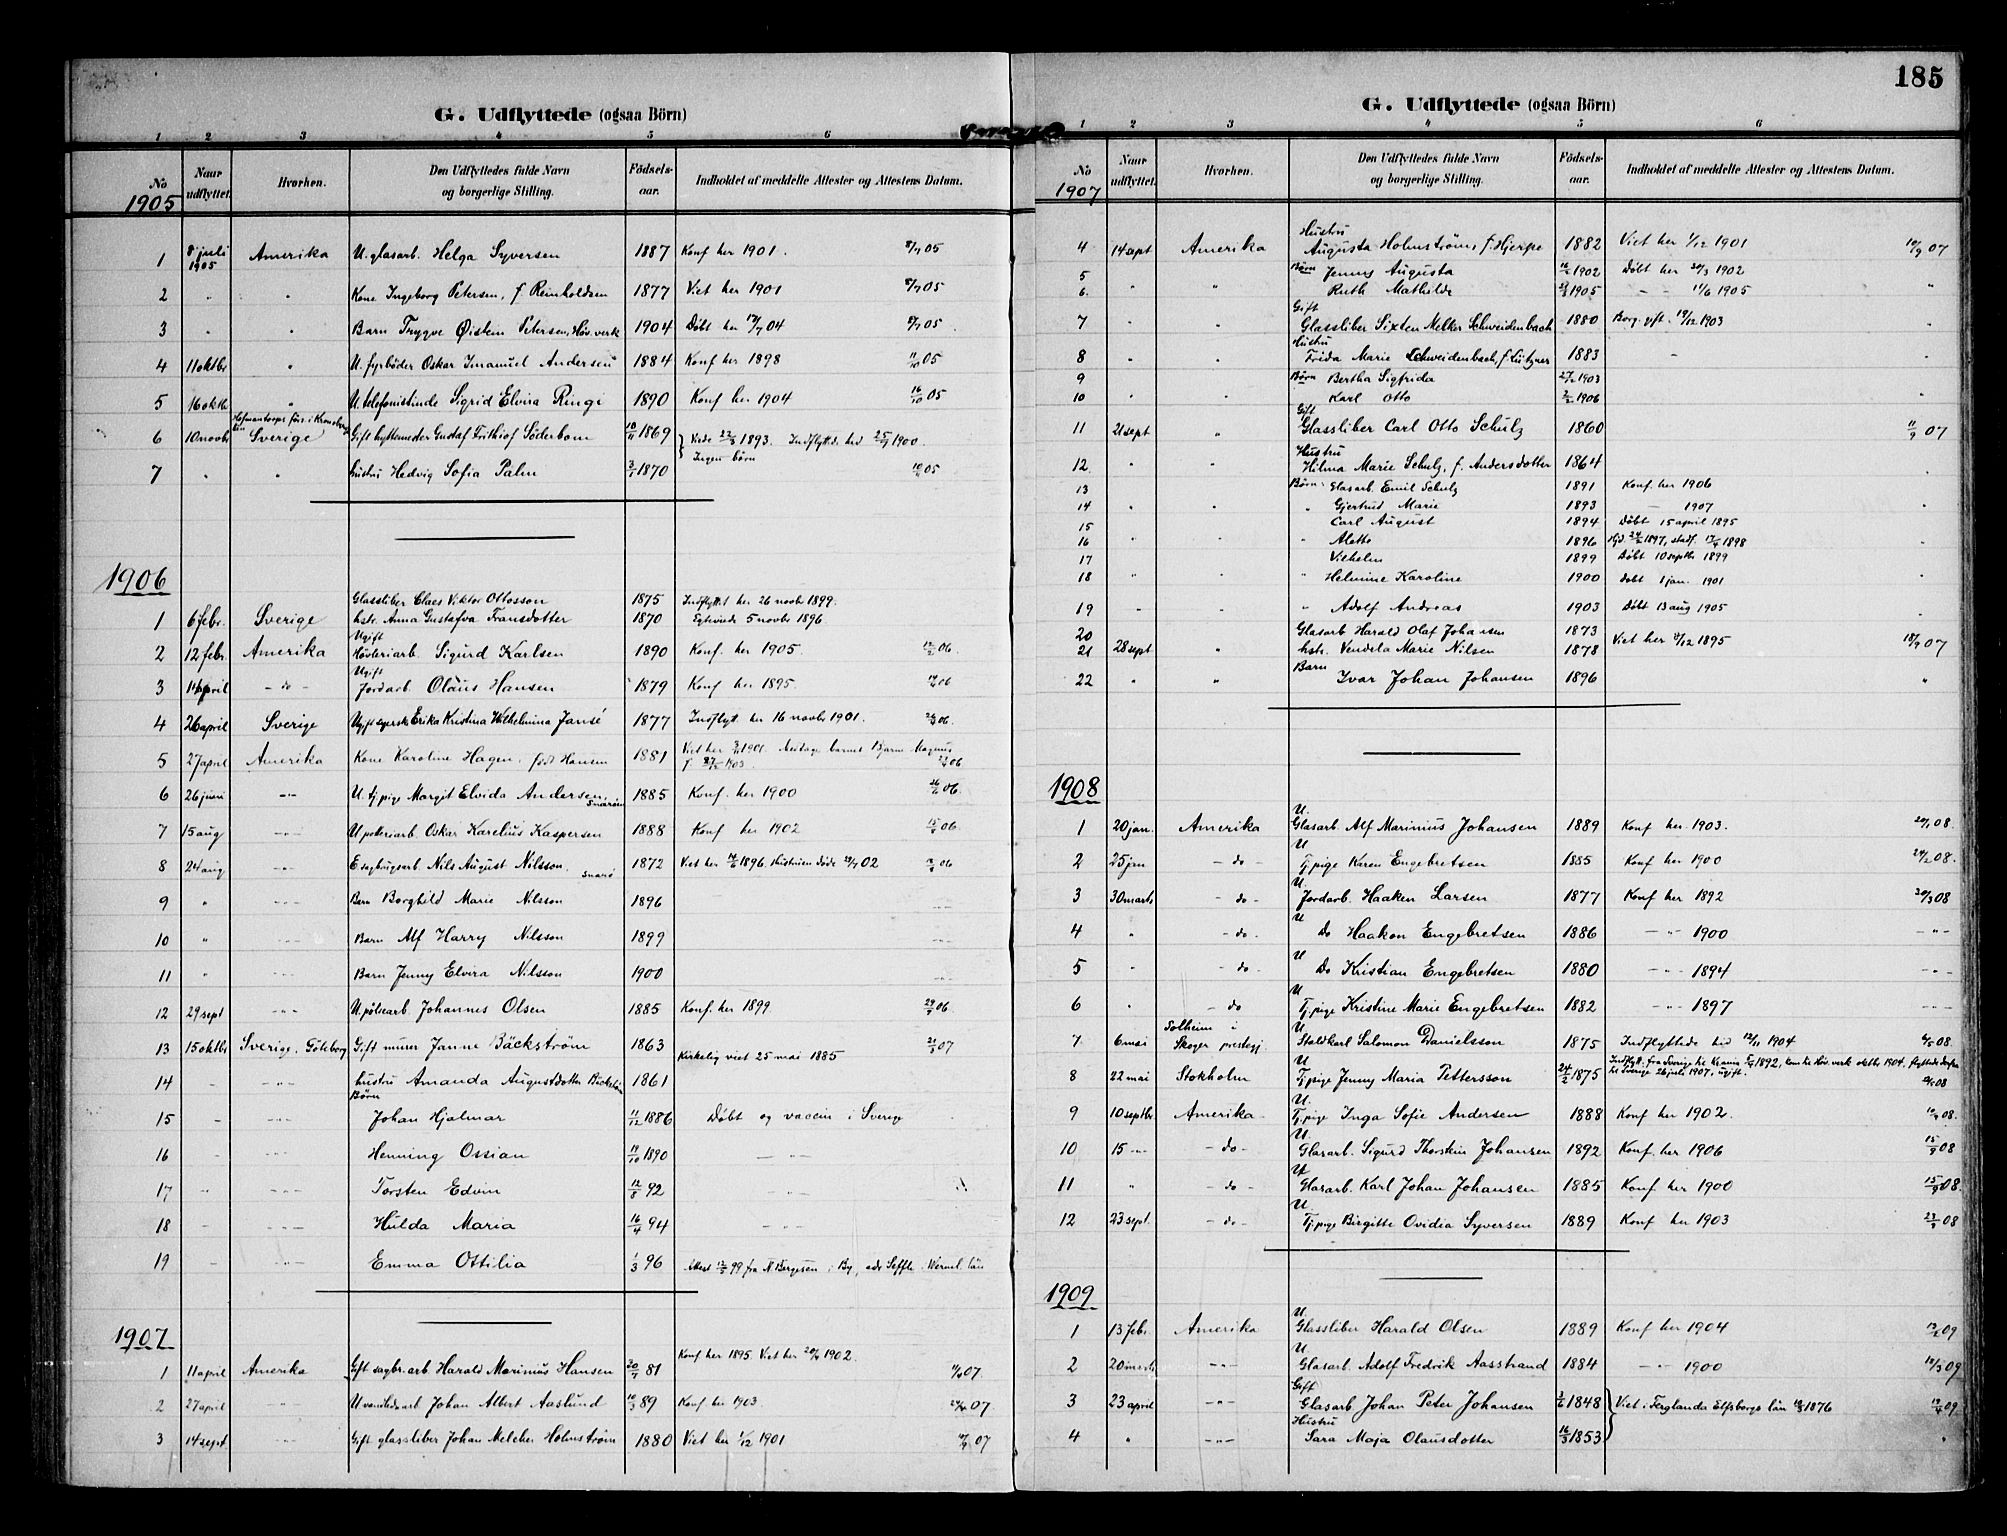 185
G. Udflyttede (ogsaa Börn)
1 2 3 4 5 6
No Naar udflyttet. Hvorhen. Den Udflyttedes fulde Navn og borgerlige Stilling. Födsels-aar. Indholdet af meddelte Attester og Attestens Datum.
1905
1 8 juli 1905 Amerika U. glasarb. Helga Syversen 1887 Konf her 1901. 8/7 05
2 " " Kone Ingeborg Petersen, f. Reinholdsen 1877 Viet her 1901 8/7 05
3 " " Barn Trygve Øistein Petersen, Høv. verk 1904 Døbt her 04 8/7 05
4 11 oktbr " U. fyrbøder Oskar Imanuel Andersen 1884 Konf her 1898 11/10 05
5 16 oktbr " U. telefonistinde Sigrid Elvira Ringi 1890 Konf her 1904 16/10 05
6 10 novbr Sverige Gift hyttemester Gustaf Frithiof Söderbom 1869 1893. Indflytt. hid 1900.
Ingen børn
7 " " hustru Hedvig Sofia Palm 1870 05
1906
Glassliber Claes Viktor Ottosson 1875 Indflyttet her 26 novbr 1899.
1 6 febr. Sverige hstr. Anna Gustafva Fransdotter 1870 Egteviede 5 novbr 1896.
Ugift
2 12 febr. Amerika Sigurd Karlsen 1890 Konf. her 1905 12/2 06.
Ugift
3 april -do- Jordarb. Olaus Hansen 1879 Konf. her 1895. 06
4 26 april Sverige Ugift Erika Kristina Wilhelmina Jansé 1877 Indflytt. her 16 novbr 1901. 06.
5 27 april Amerika Kone Karoline Hagen, født Hansen 1881 Viet her 1901. Medtage barnet Bjarne Magnus
f. 1903. 06
6 26 juni -"- U. tj.pige Margit Elvida Andersen, Snarøn 1885 Konf. her 1900 26/6 06.
7 15 aug -"- U. poleriarb. Oskar Karelius Kaspersen 1888 Konf her 1902 06.
8 24 aug -"- E. sagbrugsarb. Nils August Nilsson. Snarø 1872 Viet her 1896. Hustruen døde 02 06
9 " -"- Barn Borghild Marie Nilsson 1896 -"-
10 " -"- Barn Alf Harry Nilsson 1899 -"-
11 " -"- Barn Jenny Elvira Nilsson 1900 -"-
12 29 sept -"- U. Johannes Olsen 1885 Konf. her 1899. 29/9 06.
13 15 oktbr Sverige. Göteborg Gift murer Janne Bäckström 1863 07
Kirkelig viet 25 mai 1885
14 - -"- hustru Amanda Augustdotter 1861
Børn
15 - -"- Johan Hjalmar 11/12 1886 Døbt og vaccin i Sverig
16 - -"- Henning Ossian 1890 -"-
17 " -"- Torsten Edvin 12/8 92 -"-
18 - -"- Hulda Maria 16/4 94 -"-
19 - -"- Emma Ottilia 1/3 96 Attest 99 fra N Bergesen i By, adr Seffle Wermel. län
1907
1 11 april Amerika Gift sagbr.arb Harald Marinius Hansen 81 Konf her 1895. Viet her 1902. 07.
2 27 april -"- U. Johan Albert Aaslund 89 Konf her 1903. 07.
3 14 sept. -"- Gift glassliber Johan Melcher Holmström 1880 Viet her 1/12 1901 07
G. Udflyttede (ogsaa Börn)
1 2 3 4 5 6
No Naar udflyttet. Hvorhen. Den Udflyttedes fulde Navn og borgerlige Stilling. Födsels-aar. Indholdet af meddelte Attester og Attestens Datum.
1907
Hustru
4 14 sept Amerika Augusta Holmström, f. Hjerpe 1882 Viet her 1/12 1901 07
5 Børn Jenny Augusta 1902 Døbt her 1902
6. " " Ruth Mathilde 1905 - - 11/6 1905 "
Gift
7 " " Glassliber Sixten Melker Schweidenbach 1880 Borg. gift. 1903 "
Hustru
8 " " Frida Marie Schweidenbach, f. Lützner 1883 - "
9 Børn Bertha Sigfrida 1903
10 " " Karl Otto 1906 "
Gift
11 21 sept " Glassliber Carl Otto Schulz 1860 11/9 07
Hustru
12 " " Hilma Marie Schulz, f. Andersdotter 1864
13 Børn: Glasarb. Emil Schulz 1891 Konf. her 1906
14 " " " Gjertrud Marie 1893 — 1907
15 Carl August 1894 Døbt 15 april 1895
16 " " " Alette 1896 1897, stadf. 1898
17 Vilhelm 1899 Døbt 10 septbr 1899
18 " " " Helmine Karoline 1900 Døbt 1 jan. 1901
19 " " " Adolf Andreas 1903 Døbt 13 aug 1905
20 Glasarb Harald Olaf Johansen 1873
21 28 sept " hstr. Vendela Marie Nilsen 1878 Viet her 1895 07
22 " " Barn Ivar Johan Johansen 1896 "
1908
U.
1 20 jan. Amerika Glasarb. Alf Marinius Johansen 1889 Konf her 1903. 20/1 08.
U
2 25 jan -do- Tj.pige Karen Engebretsen 1885 Konf her 1900 08.
U.
3 30 marts -do- Jordarb. Haaken Larsen 1877 Konf her 1892 08
U
4 " -do- Do Haakon Engebretsen 1886 -"- 1900 -"-
U
5 " -do- Do Kristian Engebretsen 1880 -"- 1894 -"-
U
6 " -do Tj.pige Kristine Marie Engebretsen 1882 -"- 1897 -"-
7 6 mai Solheim i Skoger prestegj. U. Staldkarl Salomon Danielsson 1875 Indflyttede hid 12/11 1904 08.
8 22 mai Stokholm U Tj.pige Jenny Maria Pettersson 24/2 1875 Indflytt. fra Sverige til Krania 1892, kom til Høv. verk oktbr 1904, flyttede derfra
til Sverige 26 juli 1907, ugift. 08
U.
9 10 septbr Amerika Tj.pige Inga Sofie Andersen 1888 Konf her 1902. 08.
U.
10 15 -"- -do- Glasarb. Sigurd Thorstein Johansen 1892 Konf. her 1906 15/9 08
U
11 " -do- Glasarb. Karl Johan Johansen 1885 Konf. her 1900 15/9 08.
U.
12 23 sept. -do- Tj.pige Birgitte Ovidia Syversen 1889 Konf her 1903 23/9 08
1909
U.
1 13 febr. Amerika Glassliber Harald Olsen 1889 Konf her 1904 09
U
2 20 marts -"- Glasarb. Adolf Fredrik Aasstrand 1884 -"- 1900 09
Gift
3 23 april -"- Glasarb Johan Peter Johansen 1848 Viet i Elfsborgs län 1876 09.
Hustru
4 " -"- Sara Maja Olausdotter 1853 "